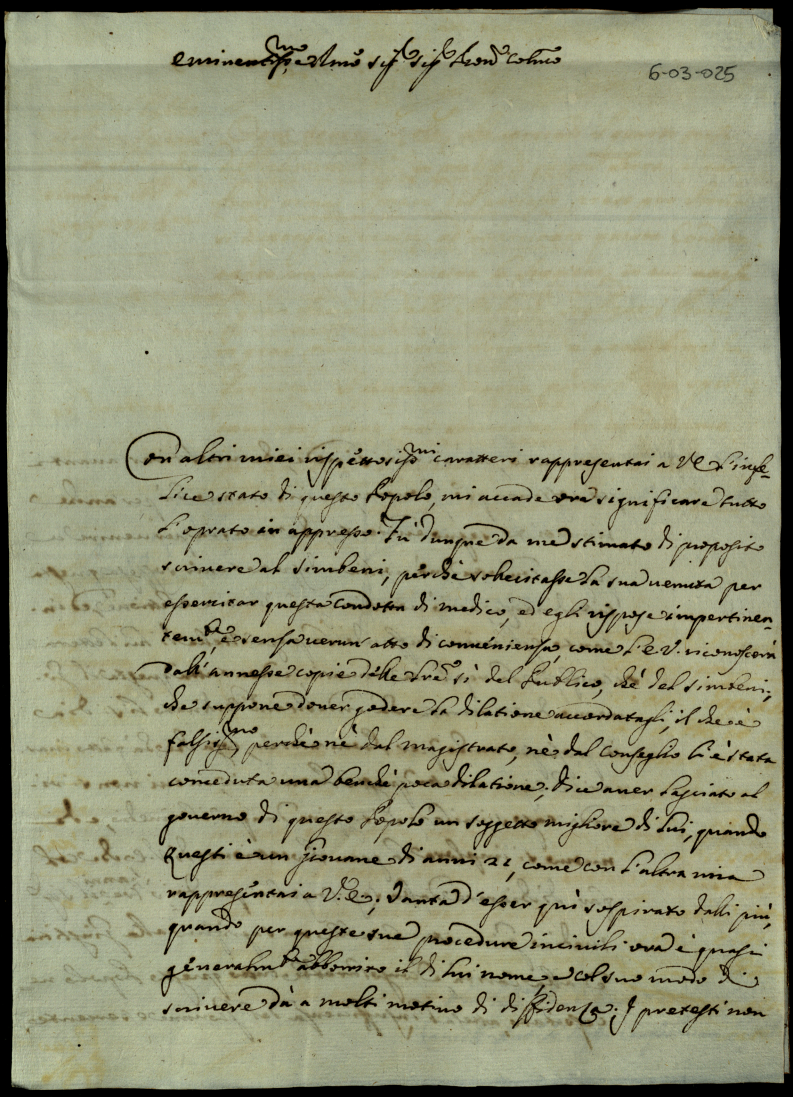 Eminentiss.mo e Rmo Sig.r Sig.r Pron.e Colmo
6-03-025
Con altri miei rispettosiss.mi caratteri rappresentai a V.E. l'infe-
lice stato di questo Popolo, mi accade ora significare tutto
l'oprato in appresso. Fù dunque da me stimato di proposito
scrivere al Simbeni, perche solecitasse la sua venuta per
essercitar questa condotta di medico, ed egli rispose impertinen-
tem.te, e senza verun atto di convenienza, come l'E.V. riconoscerà
dall'annesse copie delle l're sì del Publico, chè del Simbeni,
che suppone dover godere la dilatione accordatagli, il che è
falsiss.mo perche nè dal Magistrato, nè dal Conseglio li è stata
conceduta una benchè poca dilatione; dice aver lasciato al
governo di questo Popolo un soggetto migliore di lui, quando
questi è un giovane di anni 21, come con l'altra mia
rappresentai a V.E.; Vanta d'esser quì sospirato dalli più,
quando per queste sue procedure incivili ora è quasi
generalm.te abborrito il di lui nome, e col suo modo di
scrivere dà a molti motivo di diffidenza; I pretesti non